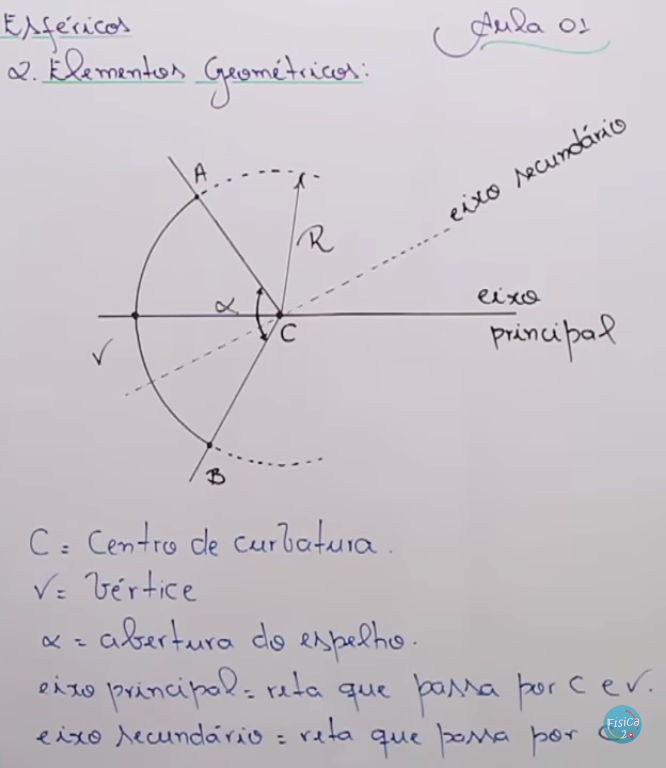 Esféricos
Aula 01
2. Elementos Geométricos:
A
eixo secundário
R
α
eixo
C
principal
V
B
C = Centro de curvatura.
V = Vértice
α = abertura do espelho.
eixo principal = reta que passa por C e V.
eixo secundário = reta que passa por
Física
2